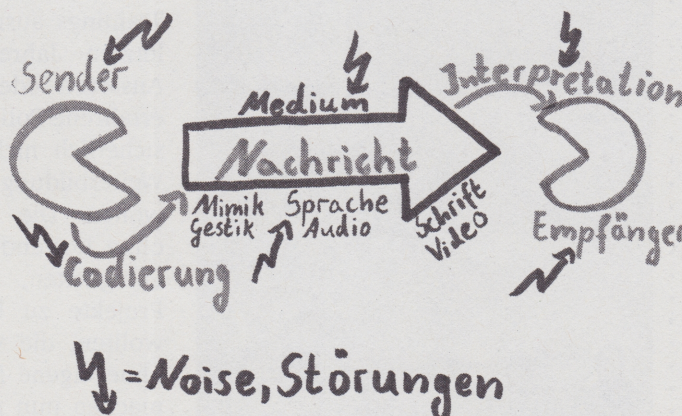 Sender
Medium
Interpretation
Nachricht
Mimik
Gestik
Sprache
Audio
Schrift
Video
Empfänger
Codierung
= Noise, Störungen